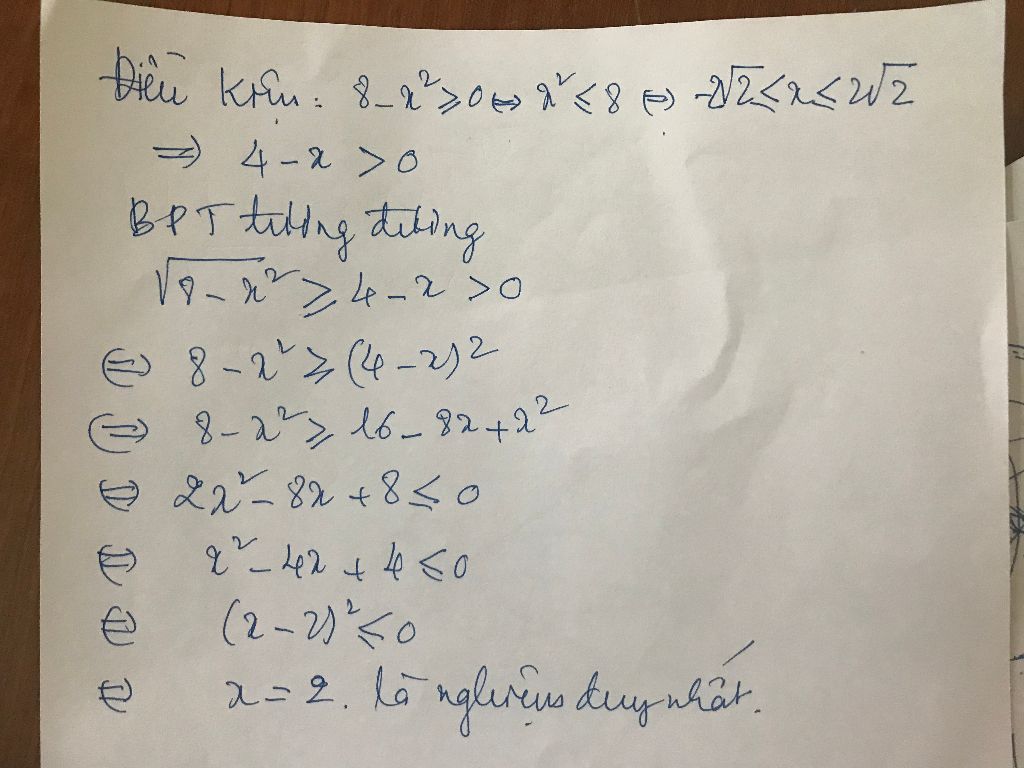 Điều kiện: 8 - x² ≥ 0 ⇔ x² ≤ 8 ⇔ -2√2 ≤ x ≤ 2√2
⇒ 4 - x > 0
BPT tương đương
√(8 - x²) ≥ 4 - x > 0
⇔ 8 - x² ≥ (4 - x)²
⇔ 8 - x² ≥ 16 - 8x + x²
⇔ 2x² - 8x + 8 ≤ 0
⇔ x² - 4x + 4 ≤ 0
⇔ (x - 2)² ≤ 0
⇔ x = 2. là nghiệm duy nhất.